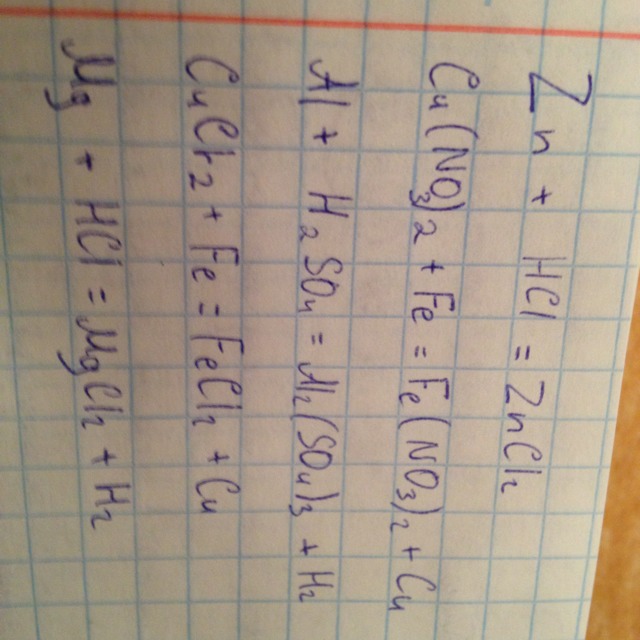 Zn + HCl = ZnCl₂
Cu(NO₃)₂ + Fe = Fe(NO₃)₂ + Cu
Al + H₂SO₄ = Al₂(SO₄)₃ + H₂
CuCl₂ + Fe = FeCl₂ + Cu
Mg + HCl = MgCl₂ + H₂